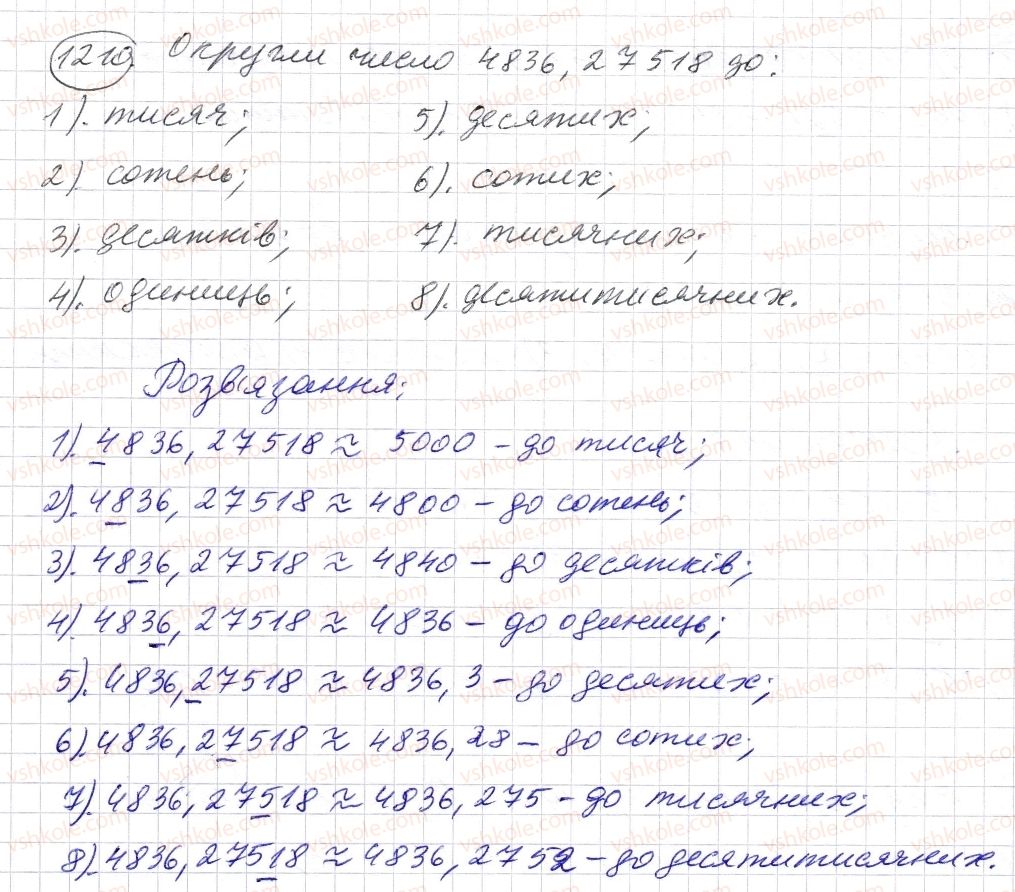 1210. Округли число 4836,27518 до:
1). тисяч; 5). десятих;
2) сотень; 6). сотих;
3). десятків; 7). тисячних;
4). одиниць; 8). десятитисячних.
Розв'язання:
1). 4836,27518 ≈ 5000 - до тисяч;
2). 4836,27518 ≈ 4800 - до сотень;
3). 4836,27518 ≈ 4840 - до десятків;
4). 4836,27518 ≈ 4836 - до одиниць;
5). 4836,27518 ≈ 4836,3 - до десятих;
6). 4836,27518 ≈ 4836,28 - до сотих;
7). 4836,27518 ≈ 4836,275 - до тисячних;
8). 4836,27518 ≈ 4836,2752 - до десятитисячних.
vshkole.com